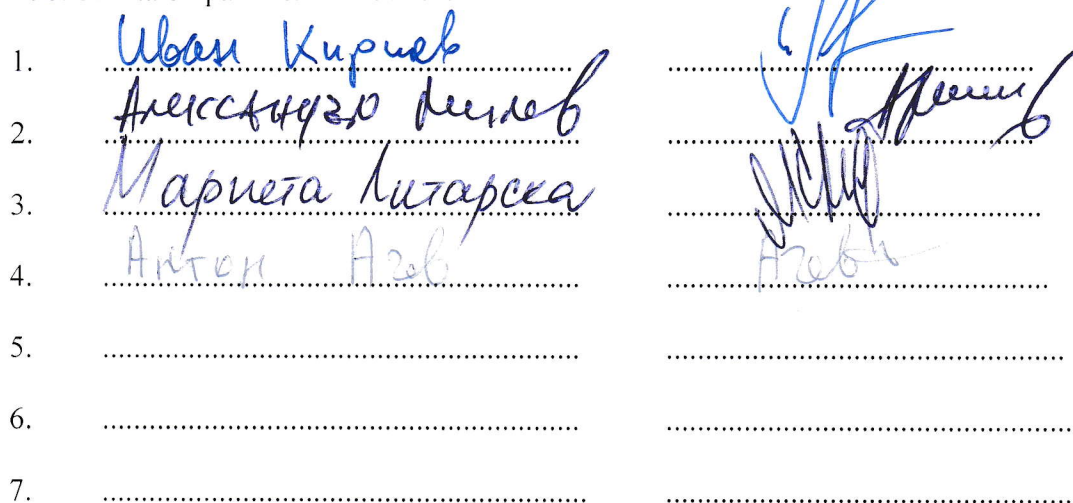 1. Иван Кирчев
2. Александър
3. Мариета Литарска
4. Антон Азев Азевъ
5.
6.
7.